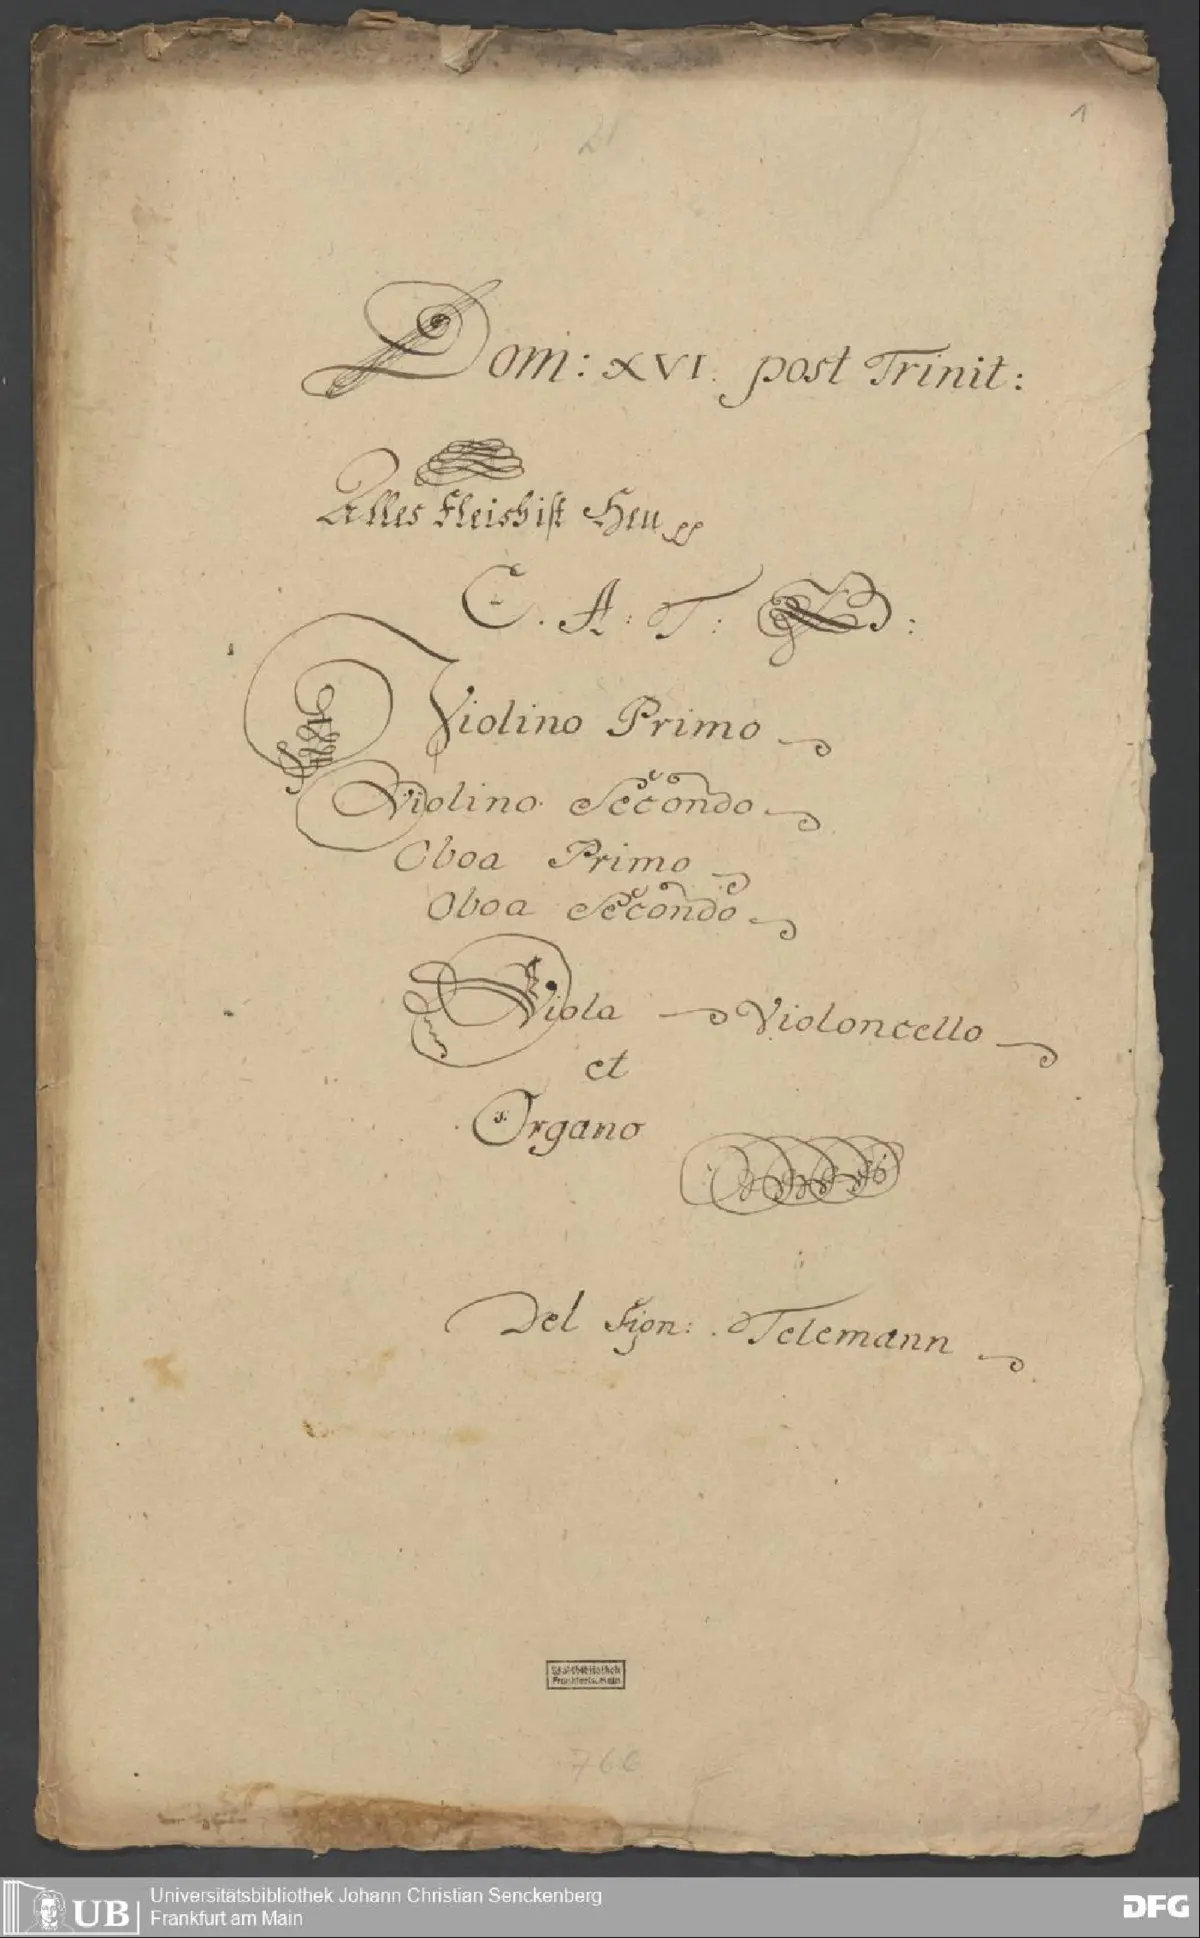 1
21
Dom: XVI. post Trinit:
Alles Fleisch ist Heu
C. A: T: B:
Violino Primo
Violino Secondo
Oboa Primo
Oboa Secondo
Viola Violoncello
et
Organo
Del Sign: Telemann
Stadtbibliothek
Frankfurt a. Main
766
UB
Universitätsbibliothek Johann Christian Senckenberg
Frankfurt am Main
DFG